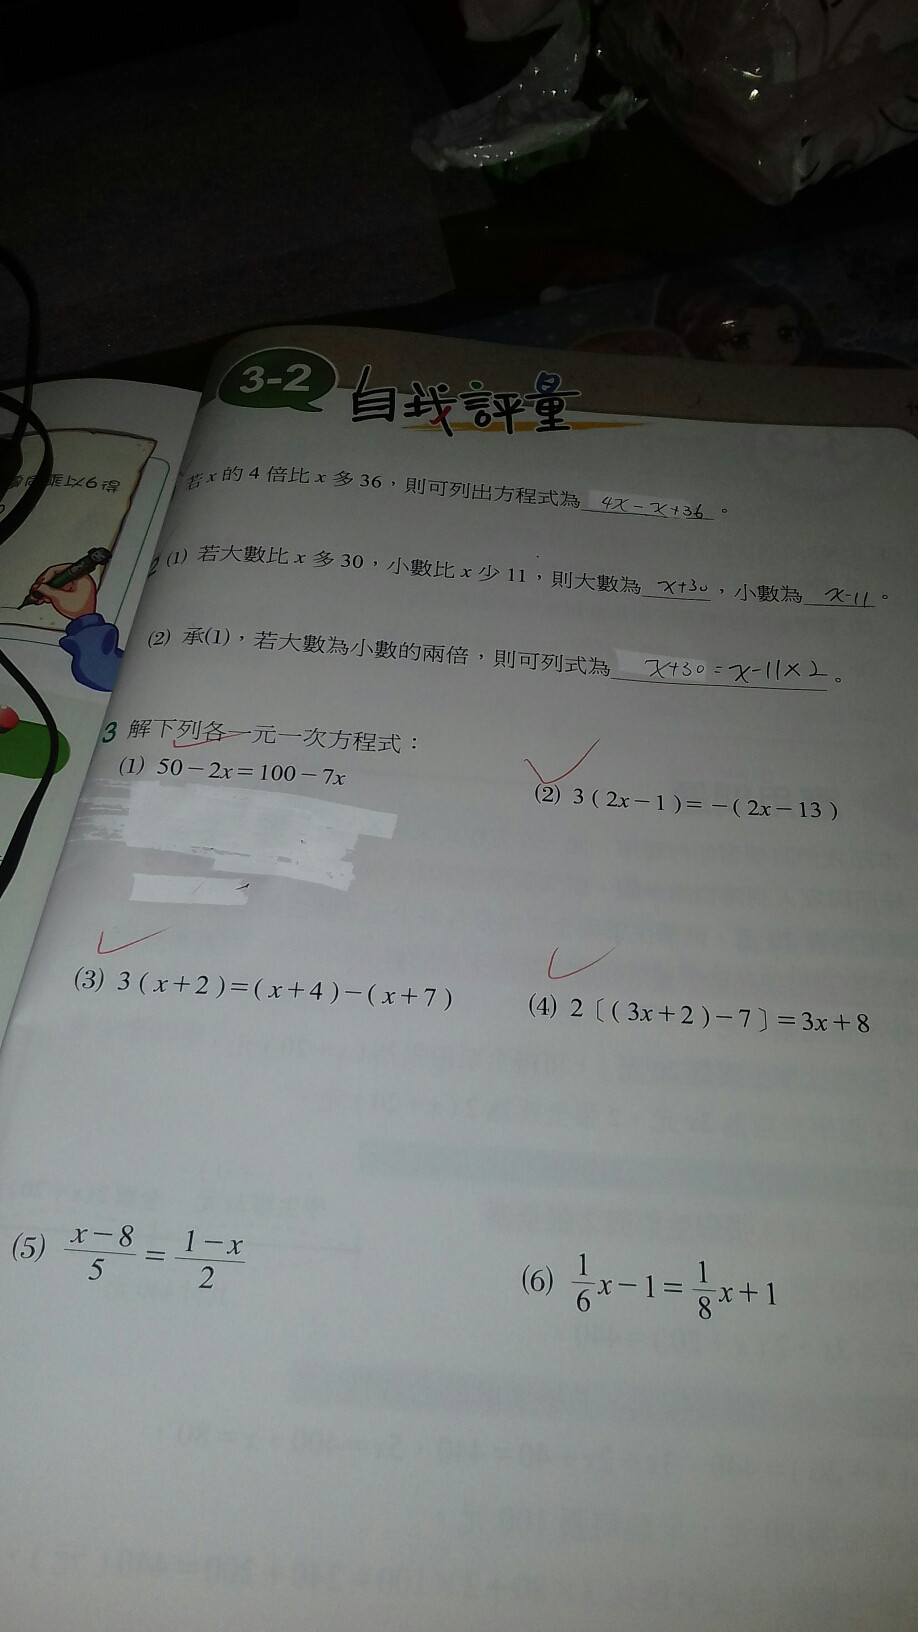 3-2 自我評量
乘以6得
若x的4倍比x多36,則可列出方程式為 4x-x+36 。
2 (1) 若大數比x多30,小數比x少11,則大數為 x+30 ,小數為 x-11 。
(2) 承(1),若大數為小數的兩倍,則可列式為 x+30=x-11×2 。
3 解下列各一元一次方程式:
(1) 50-2x=100-7x
(2) 3(2x-1)=-(2x-13)
(3) 3(x+2)=(x+4)-(x+7)
(4) 2〔(3x+2)-7〕=3x+8
(5) \frac{x-8}{5}=\frac{1-x}{2}
(6) \frac{1}{6}x-1=\frac{1}{8}x+1